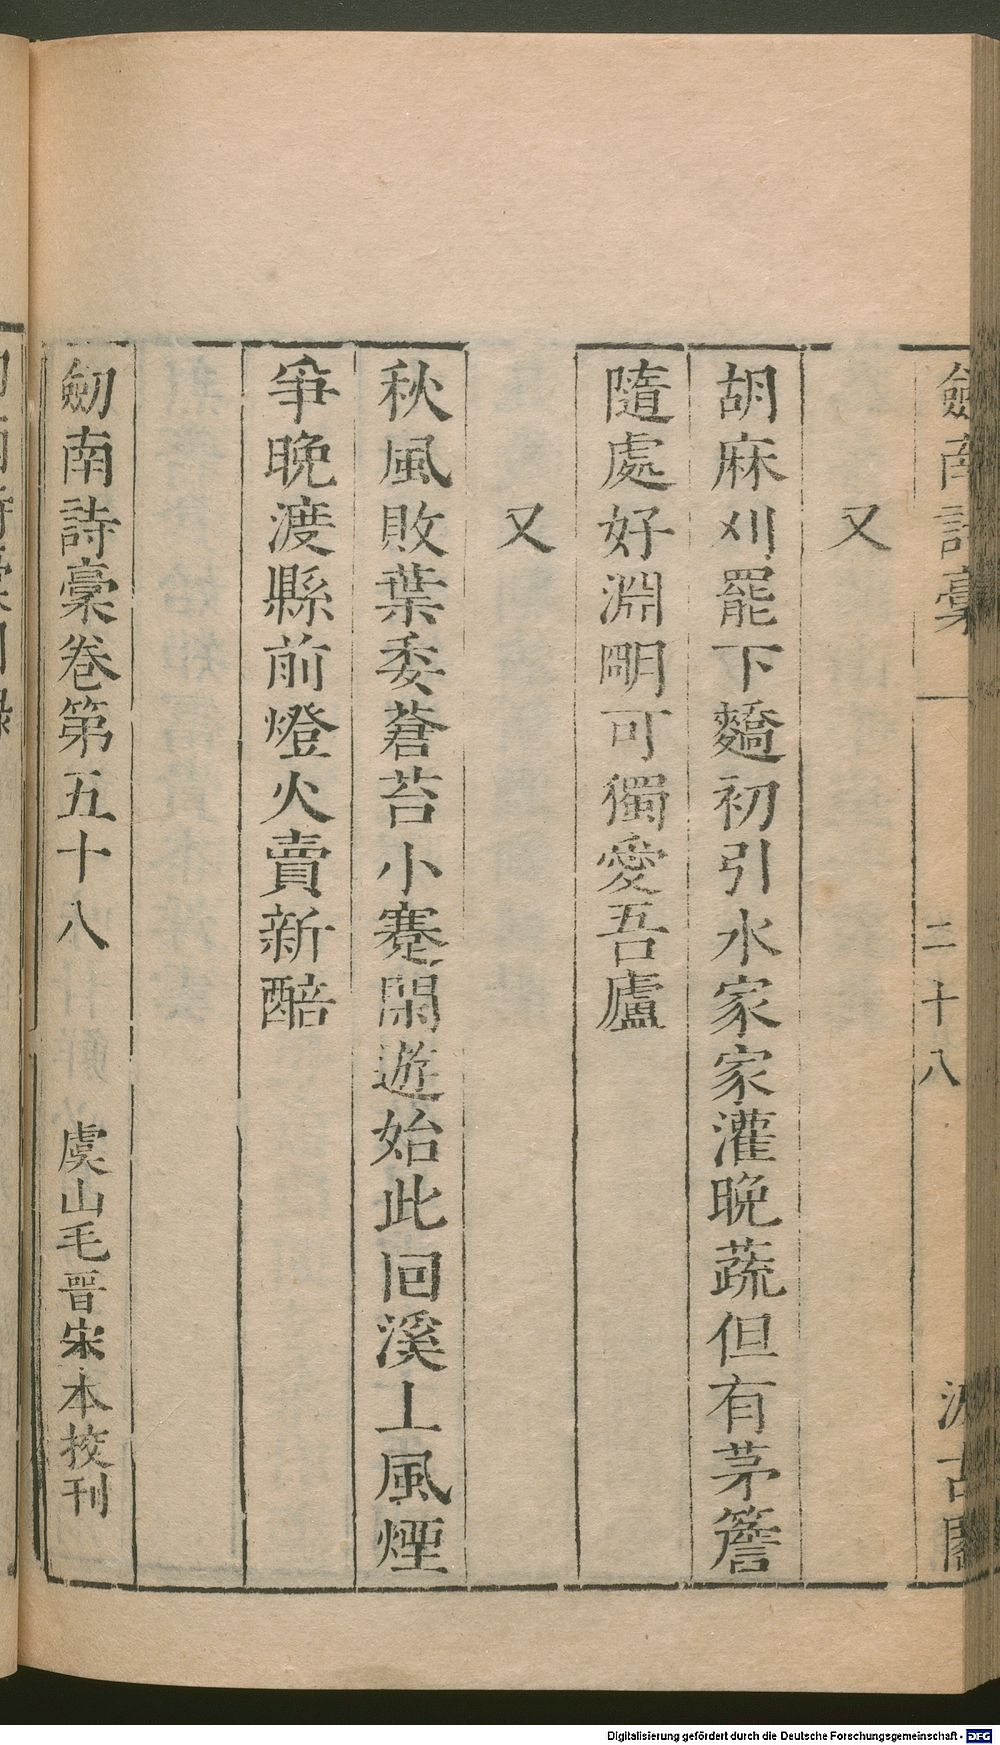 劒南詩稾
二十八
汲古閣
又
胡麻刈罷下蕎初引水家家灌晚蔬但有茅簷
隨處好淵明可獨愛吾廬
又
秋風敗葉委蒼苔小蹇閑遊始此回溪上風煙
爭晚渡縣前燈火賣新醅
劒南詩稾卷第五十八
虞山毛晉宋本挍刊
Digitalisierung gefördert durch die Deutsche Forschungsgemeinschaft - DFG